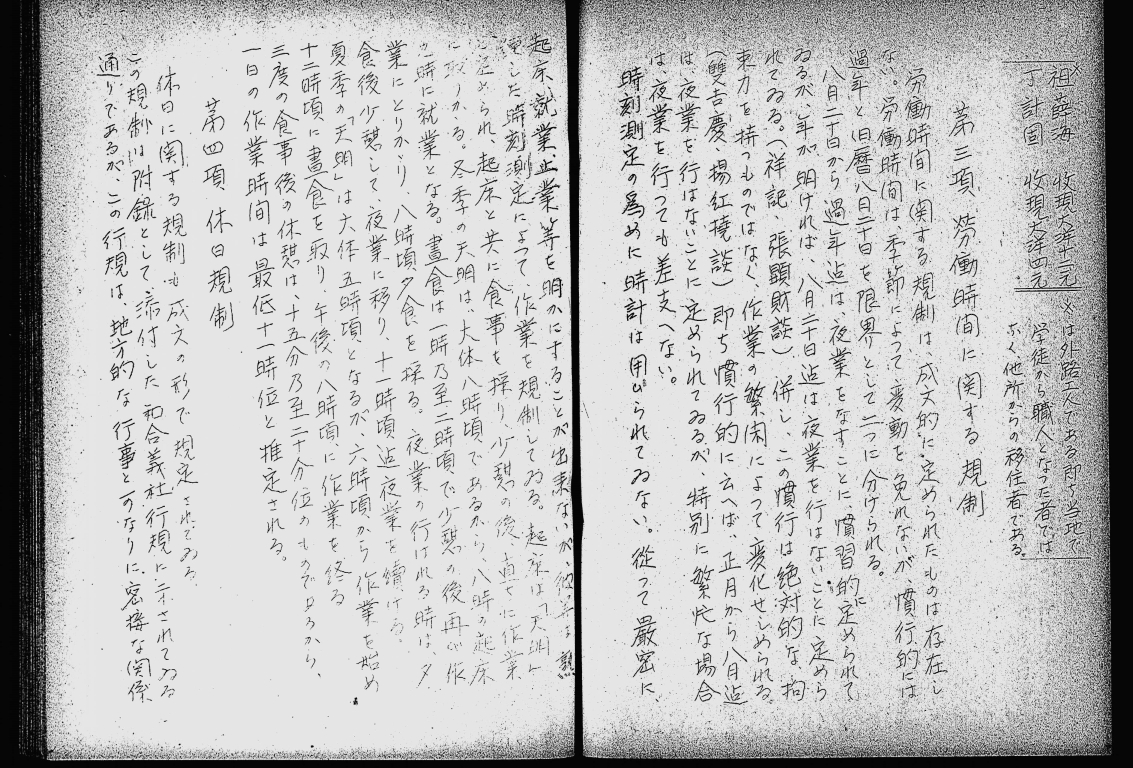 祖蔭海 收現大洋十二元 ※
丁計国 收現大洋四元
※は外路工人である即ち当地で
学徒から職人となった者では
なく他所からの移住者である。
第三項 労働時間に関する規制
労働時間に関する規制は、成文的に定められたものは存在し
ない。労働時間は、季節によって変動を免れないが、慣行的には
過年と旧暦八月二十日を限界として二つに分けられる。
八月二十日から過年迠は、夜業をなすことに、慣習的に定められて
ゐるが、年が明ければ、八月二十日迠は夜業を行はないことに定めら
れてゐる。(祥記、張顕財談)、併し、この慣行は絶対的な、拘
束力を持つものではなく、作業の繁閑によって変化せしめられる。
(雙吉慶、揚紅撓談) 即ち慣行的に云へば、正月から八月迠
は、夜業を行はないことに定められてゐるが、特別に繁忙な場合
は、夜業を行っても差支へない。
時刻測定の為めに時計は用ひられてゐない。従って厳密に、
起床、就業、止業等を明かにすることが出来ないが、彼等は熟
した時刻測定によって、作業を規制してゐる。起床は「天明」
められ、起床と共に食事を採り、少憩の後、直ちに作業
に取りかゝる。冬季の天明は、大体八時頃であるから、八時の起床
時に就業となる。晝食は一時乃至二時頃で少憩の後再び作
業にとりかゝり、八時頃夕食を採る。夜業の行はれる時は、夕
食後少憩して、夜業に移り、十一時頃迠夜業を續ける。
夏季の「天明」は大体五時頃となるが、六時頃から作業を始め
十二時頃に晝食を取り、午後の八時頃に作業を終る
三度の食事の後の休憩は、十五分乃至二十分位のものであるから、
一日の作業時間は最低十一時位と推定される。
第四項 休日規制
休日に関する規制も成文の形で規定されてゐる
この規制は附錄として、添付した和合義社行規に示されてゐる
通りであるが、この行規は、地方的な行事とかなりに、密接な関係